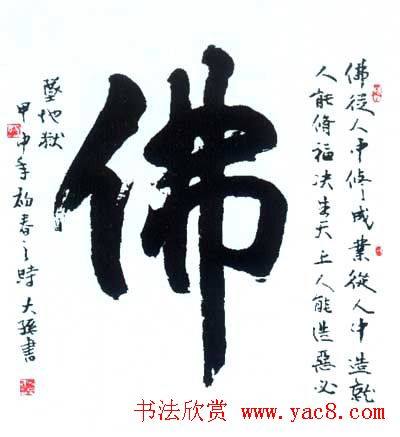 佛從人中修成業從人中造就
人能脩福决生天上人能造惡必
佛
墜地獄
甲申年初春之時大書
书法欣赏 www.yac8.com